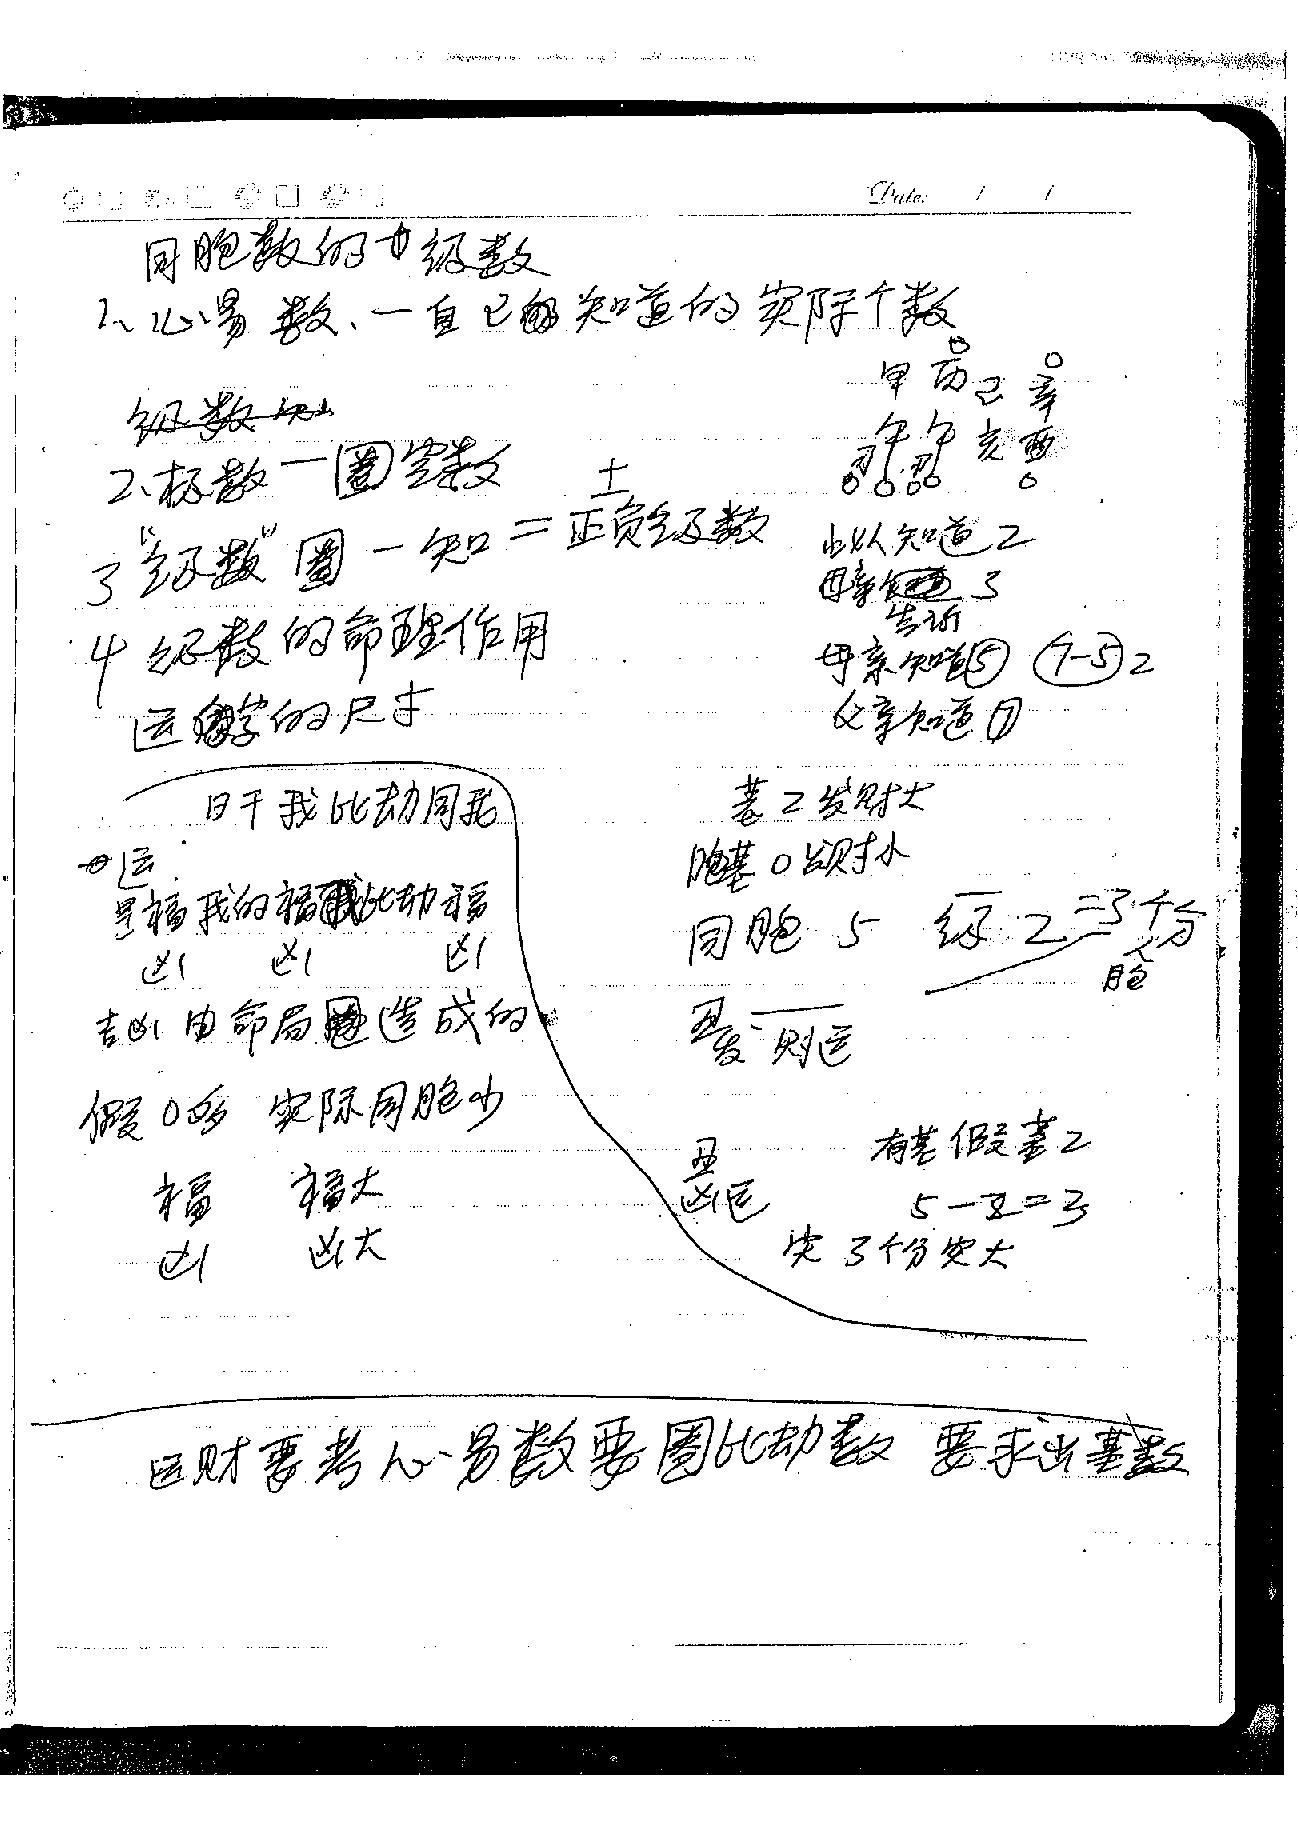 Date: / /
同胞数的 级数
1、心易数、一自己 知道的实际个数
甲 丙 己 辛
午 午 亥 酉
2、极数一圈定数
±
3 "级数"圈一知=正负级数
所以知道2
母亲 3
告诉
4 级数的命理作用
母亲知道⑤ (7-5) 2
运 字的尺寸
父亲知道⑦
日干我比劫同我
差2发财大
胞差0发财小
运
是福我的福 比劫福
凶 凶 凶
同胞 5 级 2 =3个分
胞
吉凶由命局 造成的
丑
发 财运
假0多 实际同胞少
丑 有差假差2
凶运
福 福大
5-2=3
凶 凶大
实3个分灾大
运财要考心易数要圈比劫数 要求出基数